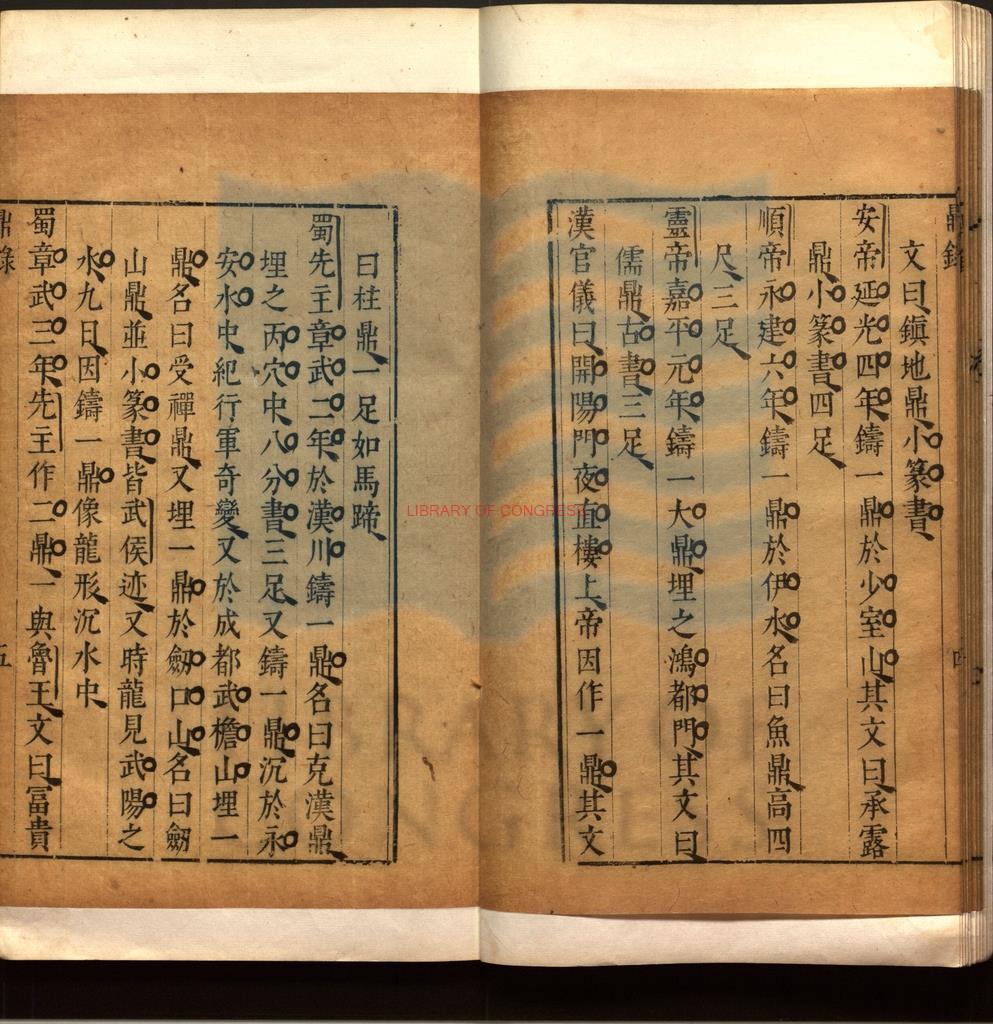 鼎錄
文曰鎮地鼎小篆書
安帝延光四年鑄一鼎於少室山其文曰承露
鼎小篆書四足
順帝永建六年鑄一鼎於伊水名曰魚鼎高四
尺三足
靈帝嘉平元年鑄一大鼎埋之鴻都門其文曰
儒鼎古書三足
漢官儀曰開陽門夜直樓上帝因作一鼎其文
LIBRARY OF CONGRESS
曰柱鼎一足如馬蹄
蜀先主章武二年於漢川鑄一鼎名曰克漢鼎
埋之丙穴中八分書三足又鑄一鼎沉於永
安水中紀行軍奇變又於成都武檐山埋一
鼎名曰受禪鼎又埋一鼎於劒口山名曰劒
山鼎並小篆書皆武侯迹又時龍見武陽之
水九日因鑄一鼎像龍形沉水中
蜀章武三年先主作二鼎一與魯王文曰富貴
鼎錄
五